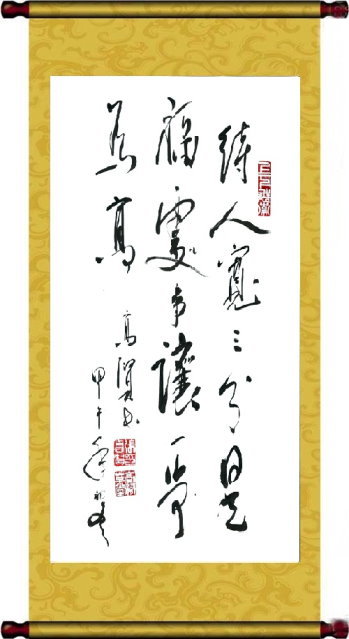 待人寬三分是
福處事讓一步
為高
高
甲午年